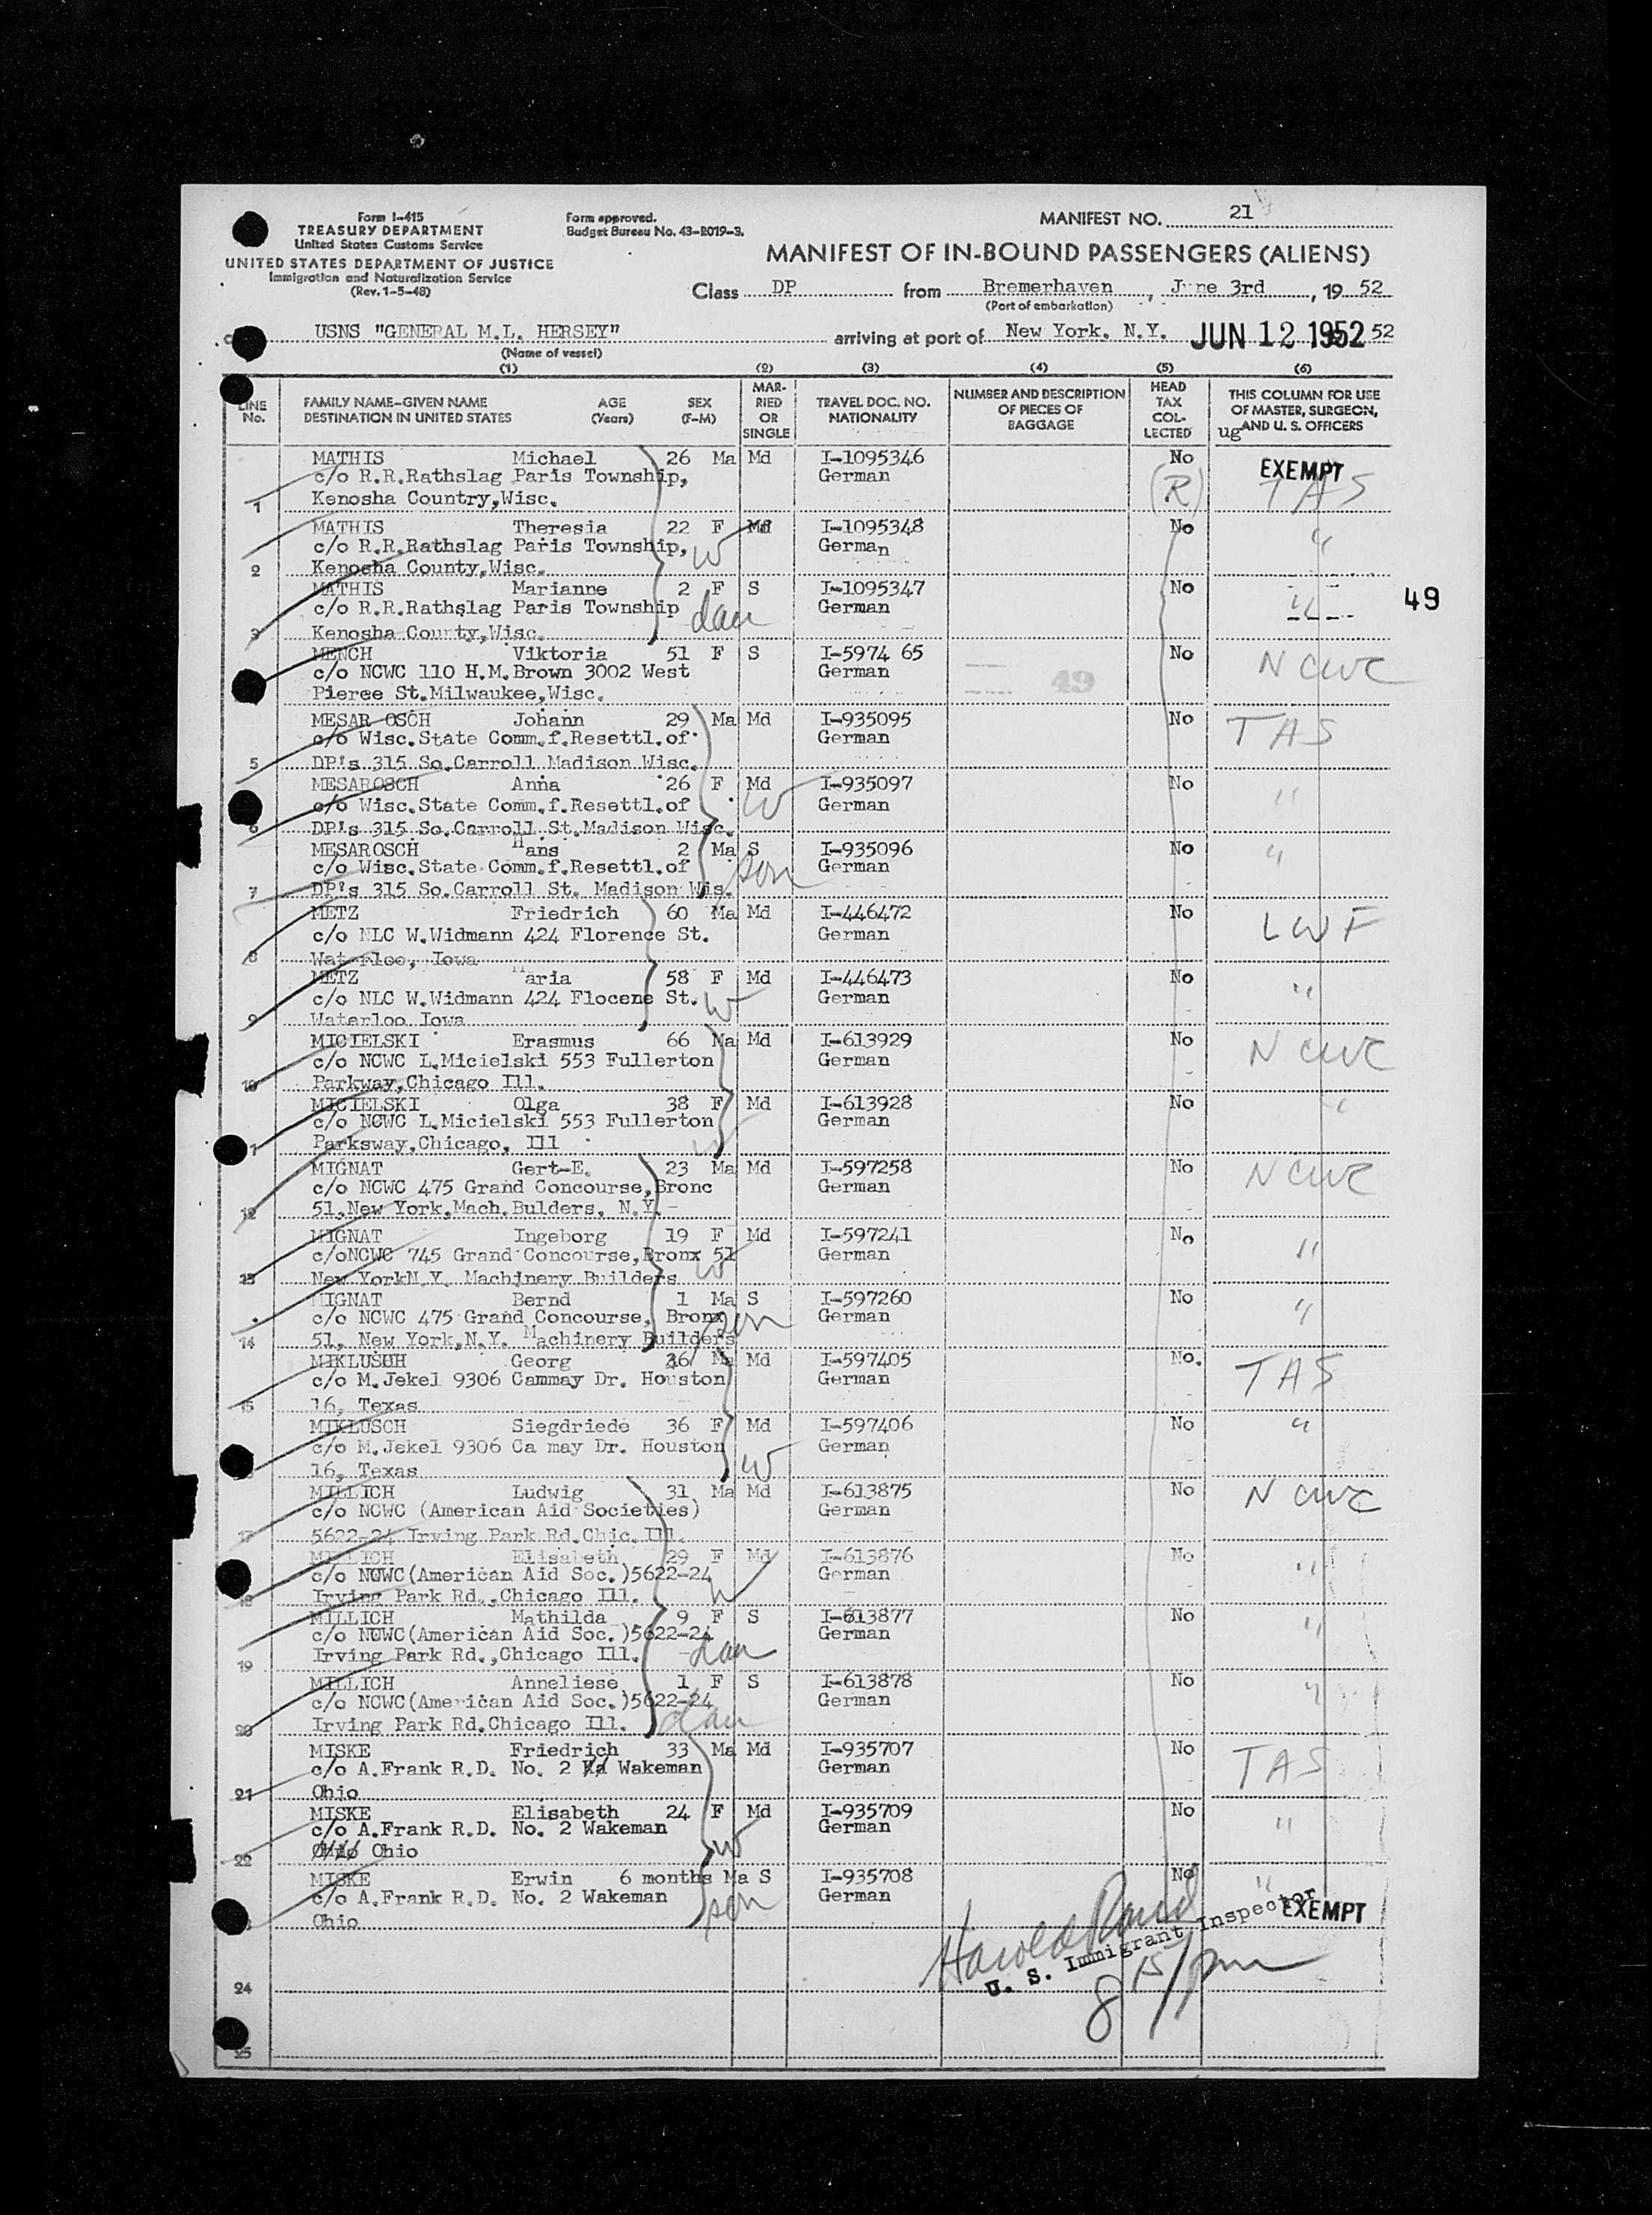 Form I-415
TREASURY DEPARTMENT
United States Customs Service
UNITED STATES DEPARTMENT OF JUSTICE
Immigration and Naturalization Service
(Rev. 1-5-48)
Form approved.
Budget Bureau No. 43-R019-3.
MANIFEST NO. 21
MANIFEST OF IN-BOUND PASSENGERS (ALIENS)
Class DP from Bremerhaven, June 3rd, 19 52
(Port of embarkation)
USNS "GENERAL M.L. HERSEY" arriving at port of New York. N.Y. JUN 12 1952 52
(Name of vessel)
(1) (2) (3) (4) (5) (6)
LINE No. FAMILY NAME—GIVEN NAME DESTINATION IN UNITED STATES AGE (Years) SEX (F-M) MARRIED OR SINGLE TRAVEL DOC. NO. NATIONALITY NUMBER AND DESCRIPTION OF PIECES OF BAGGAGE HEAD TAX COLLECTED THIS COLUMN FOR USE OF MASTER, SURGEON, AND U. S. OFFICERS
ug
MATHIS Michael 26 Ma Md I-1095346 No EXEMPT
c/o R.R.Rathslag Paris Township, German (R) TAS
1 Kenosha Country,Wisc.
MATHIS Theresia 22 F Md I-1095348 No "
c/o R.R.Rathslag Paris Township, W German
2 Kenosha County,Wisc.
MATHIS Marianne 2 F S I-1095347 No "
c/o R.R.Rathslag Paris Township dau German 49
3 Kenosha County,Wisc.
MENCH Viktoria 51 F S I-5974 65 No NCWC
c/o NCWC 110 H.M.Brown 3002 West German 49
Pierce St.Milwaukee,Wisc.
MESAR OSCH Johann 29 Ma Md I-935095 No TAS
c/o Wisc.State Comm.f.Resettl.of German
5 DP's 315 So.Carroll Madison Wisc.
MESAROSCH Anna 26 F Md I-935097 No "
c/o Wisc.State Comm.f.Resettl.of W German
6 DP's 315 So.Carroll St.Madison Wisc.
MESAROSCH Hans 2 Ma S I-935096 No "
c/o Wisc.State Comm.f.Resettl.of son German
7 DP's 315 So.Carroll St. Madison Wis.
METZ Friedrich 60 Ma Md I-446472 No LWF
c/o NLC W.Widmann 424 Florence St. German
8 Waterloo, Iowa
METZ Maria 58 F Md I-446473 No "
c/o NLC W.Widmann 424 Flocene St. W German
9 Waterloo Iowa
MICIELSKI Erasmus 66 Ma Md I-613929 No NCWC
c/o NCWC L.Micielski 553 Fullerton German
10 Parkway,Chicago Ill.
MICIELSKI Olga 38 F Md I-613928 No "
c/o NCWC L.Micielski 553 Fullerton German
Parksway,Chicago, Ill W
MIGNAT Gert-E. 23 Ma Md I-597258 No NCWC
c/o NCWC 475 Grand Concourse,Bronc German
12 51,New York,Mach.Bulders, N.Y.
MIGNAT Ingeborg 19 F Md I-597241 No "
c/oNCWC 745 Grand Concourse,Bronx 51 German
13 New YorkN.Y. Machinery Builders W
MIGNAT Bernd 1 Ma S I-597260 No "
c/o NCWC 475 Grand Concourse, Bronx son German
14 51, New York,N.Y. Machinery Builders
MIKLUSCH Georg 36 Ma Md I-597405 No. TAS
c/o M.Jekel 9306 Cammay Dr. Houston German
15 16, Texas
MIKLUSCH Siegdriede 36 F Md I-597406 No "
c/o M.Jekel 9306 Ca may Dr. Houston German
16, Texas W
MILLICH Ludwig 31 Ma Md I-613875 No NCWC
c/o NCWC (American Aid Societies) German
17 5622-24 Irving Park Rd.Chic.Ill.
MILLICH Elisabeth 29 F Md I-613876 No "
c/o NCWC(American Aid Soc.)5622-24 W German
18 Irving Park Rd.,Chicago Ill.
MILLICH Mathilda 9 F S I-613877 No "
c/o NCWC(American Aid Soc.)5622-24 German
19 Irving Park Rd.,Chicago Ill. dau
MILLICH Anneliese 1 F S I-613878 No "
c/o NCWC(American Aid Soc.)5622-24 German
20 Irving Park Rd.Chicago Ill. dau
MISKE Friedrich 33 Ma Md I-935707 No TAS
c/o A.Frank R.D. No. 2 Wakeman German
21 Ohio
MISKE Elisabeth 24 F Md I-935709 No "
c/o A.Frank R.D. No. 2 Wakeman W German
22 Ohio Ohio
MISKE Erwin 6 months Ma S I-935708 No "
c/o A.Frank R.D. No. 2 Wakeman son German EXEMPT
Ohio
Harold
U. S. Immigrant Inspector
8 15/pm
24
25